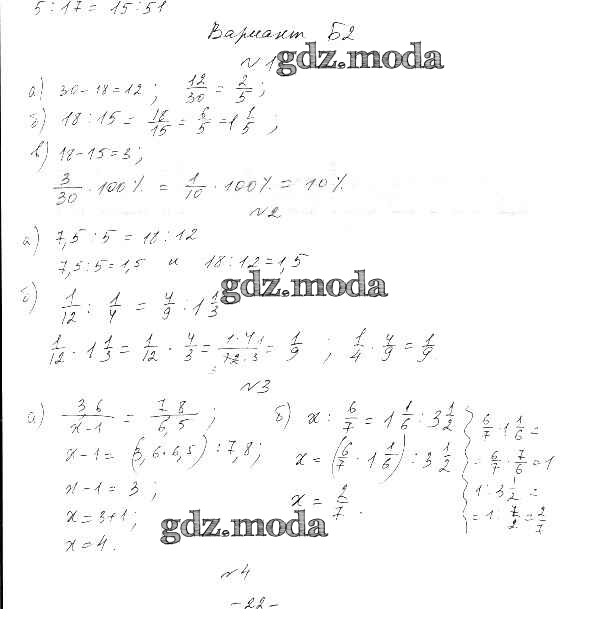 5 : 17 = 15 : 51
Вариант Б2
№1
gdz.moda
а) 30 - 18 = 12 ; 12/30 = 2/5 ;
б) 18 : 15 = 18/15 = 6/5 = 1 1/5 ;
в) 18 - 15 = 3 ;
3/30 · 100% = 1/10 · 100% = 10%
№2
а) 7,5 : 5 = 18 : 12
7,5 : 5 = 1,5 и 18 : 12 = 1,5
gdz.moda
б) 1/12 : 1/4 = 4/9 : 1 1/3
1/12 · 1 1/3 = 1/12 · 4/3 = 1·4/12·3 = 1/9 ; 1/4 · 4/9 = 1/9
№3
а) 3,6/x-1 = 7,8/6,5 ;
x - 1 = (3,6 · 6,5) : 7,8 ;
x - 1 = 3 ;
x = 3 + 1 ;
x = 4 .
б) x : 6/7 = 1 1/6 : 3 1/2
x = (6/7 · 1 1/6) : 3 1/2
x = 2/7 .
6/7 · 1 1/6 =
= 6/7 · 7/6 = 1
1 : 3 1/2 =
= 1 : 7/2 = 2/7
gdz.moda
№4
- 22 -